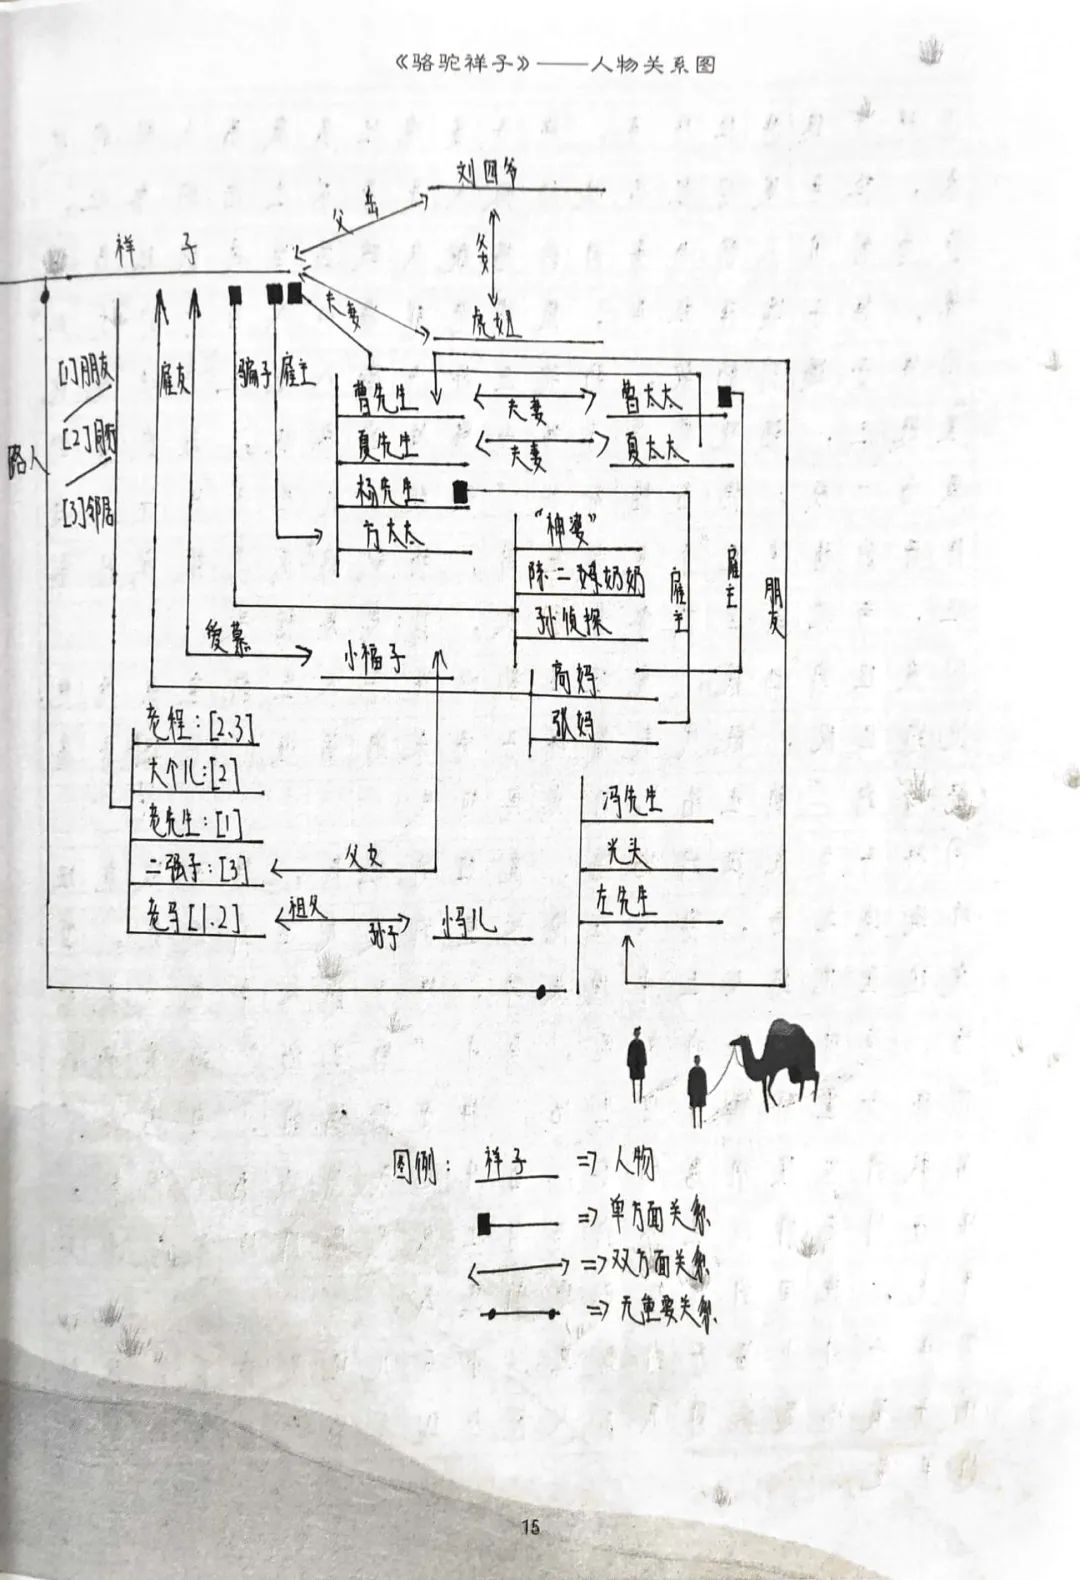 《骆驼祥子》——人物关系图
刘四爷
岳父
祥子
父女
夫妻
虎妞
[1]朋友
雇友
骗子
雇主
曹先生
夫妻
曹太太
[2]同行
夏先生
夫妻
夏太太
路人
杨先生
[3]邻居
方太太
"神婆"
陈二嫲奶奶
雇主
雇主
朋友
孙侦探
爱慕
小福子
高妈
张妈
老程:[2、3]
大个儿:[2]
老先生:[1]
冯先生
二强子:[3]
父女
光头
左先生
老马[1.2]
祖父
孙子
小马儿
图例: 祥子 => 人物
=> 单方面关系
=> 双方面关系
=> 无重要关系
15